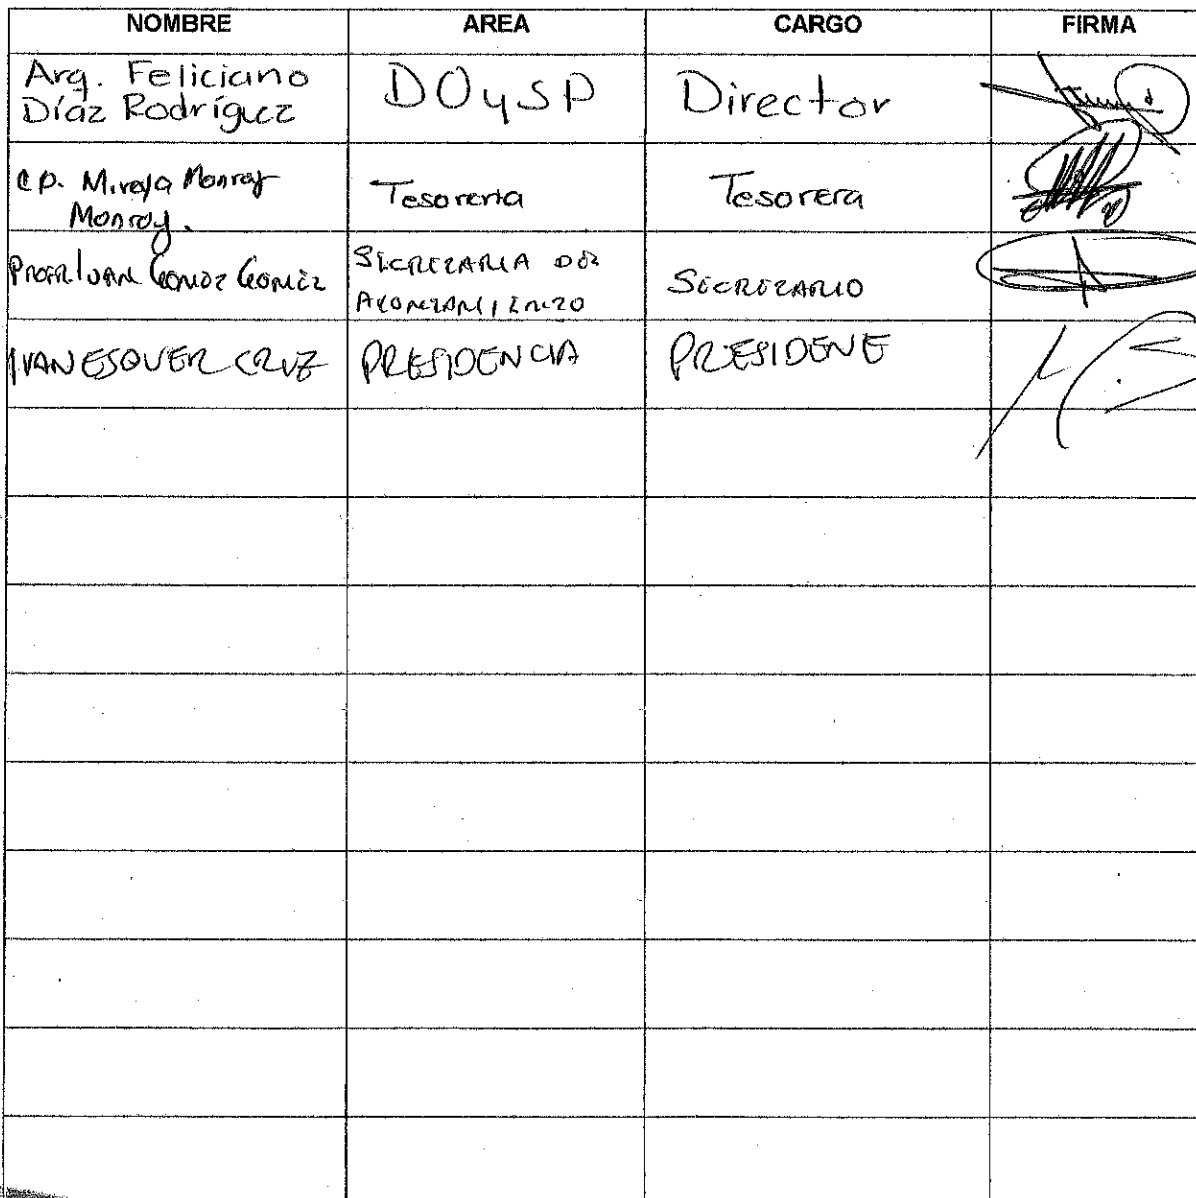 NOMBRE AREA CARGO FIRMA
Arq. Feliciano
Díaz Rodríguez
DOySP
Director
C.P. Mireya Monroy
Monroy.
Tesoreria
Tesorera
GOMEZ GOMEZ
SECRETARIA DEL
AYUNTAMIENTO
SECRETARIO
IVAN ESQUER CRUZ
PRESIDENCIA
PRESIDENE